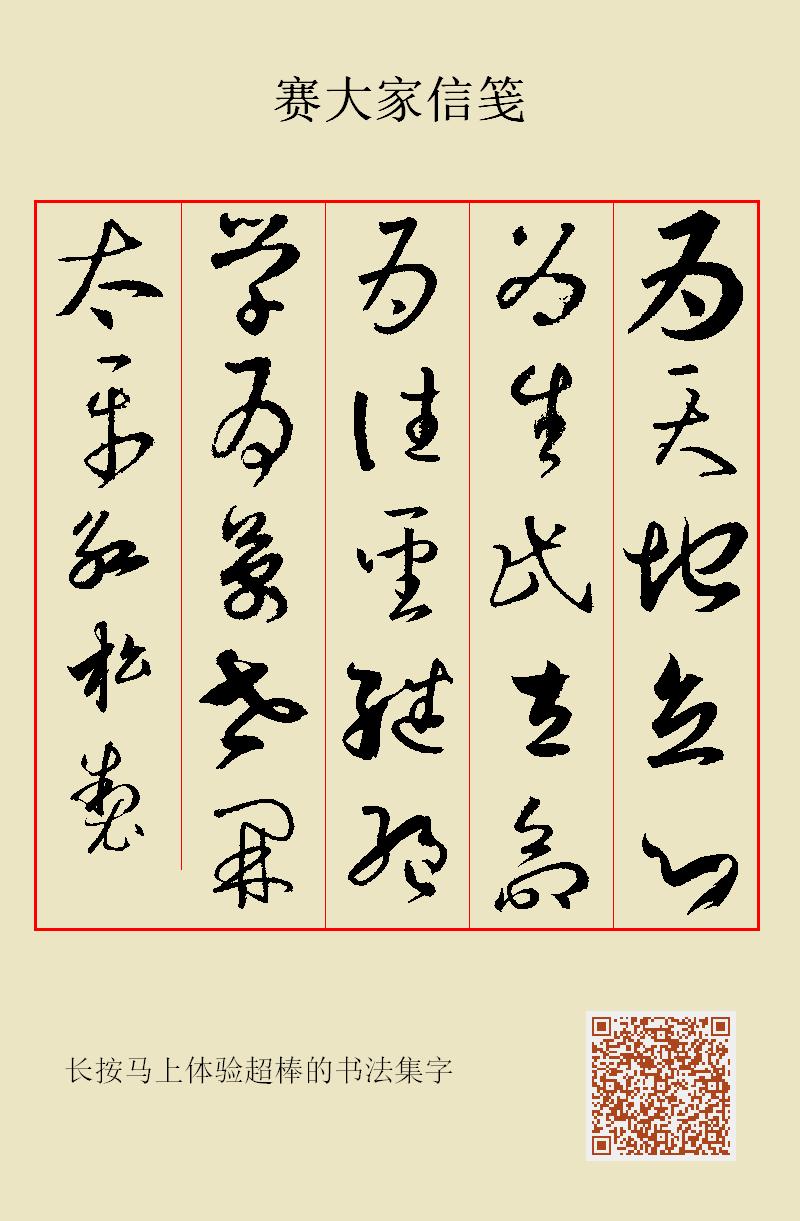 赛大家信笺
为天地立心
为生民立命
为往聖继绝
学为萬世開
太平红松製
长按马上体验超棒的书法集字